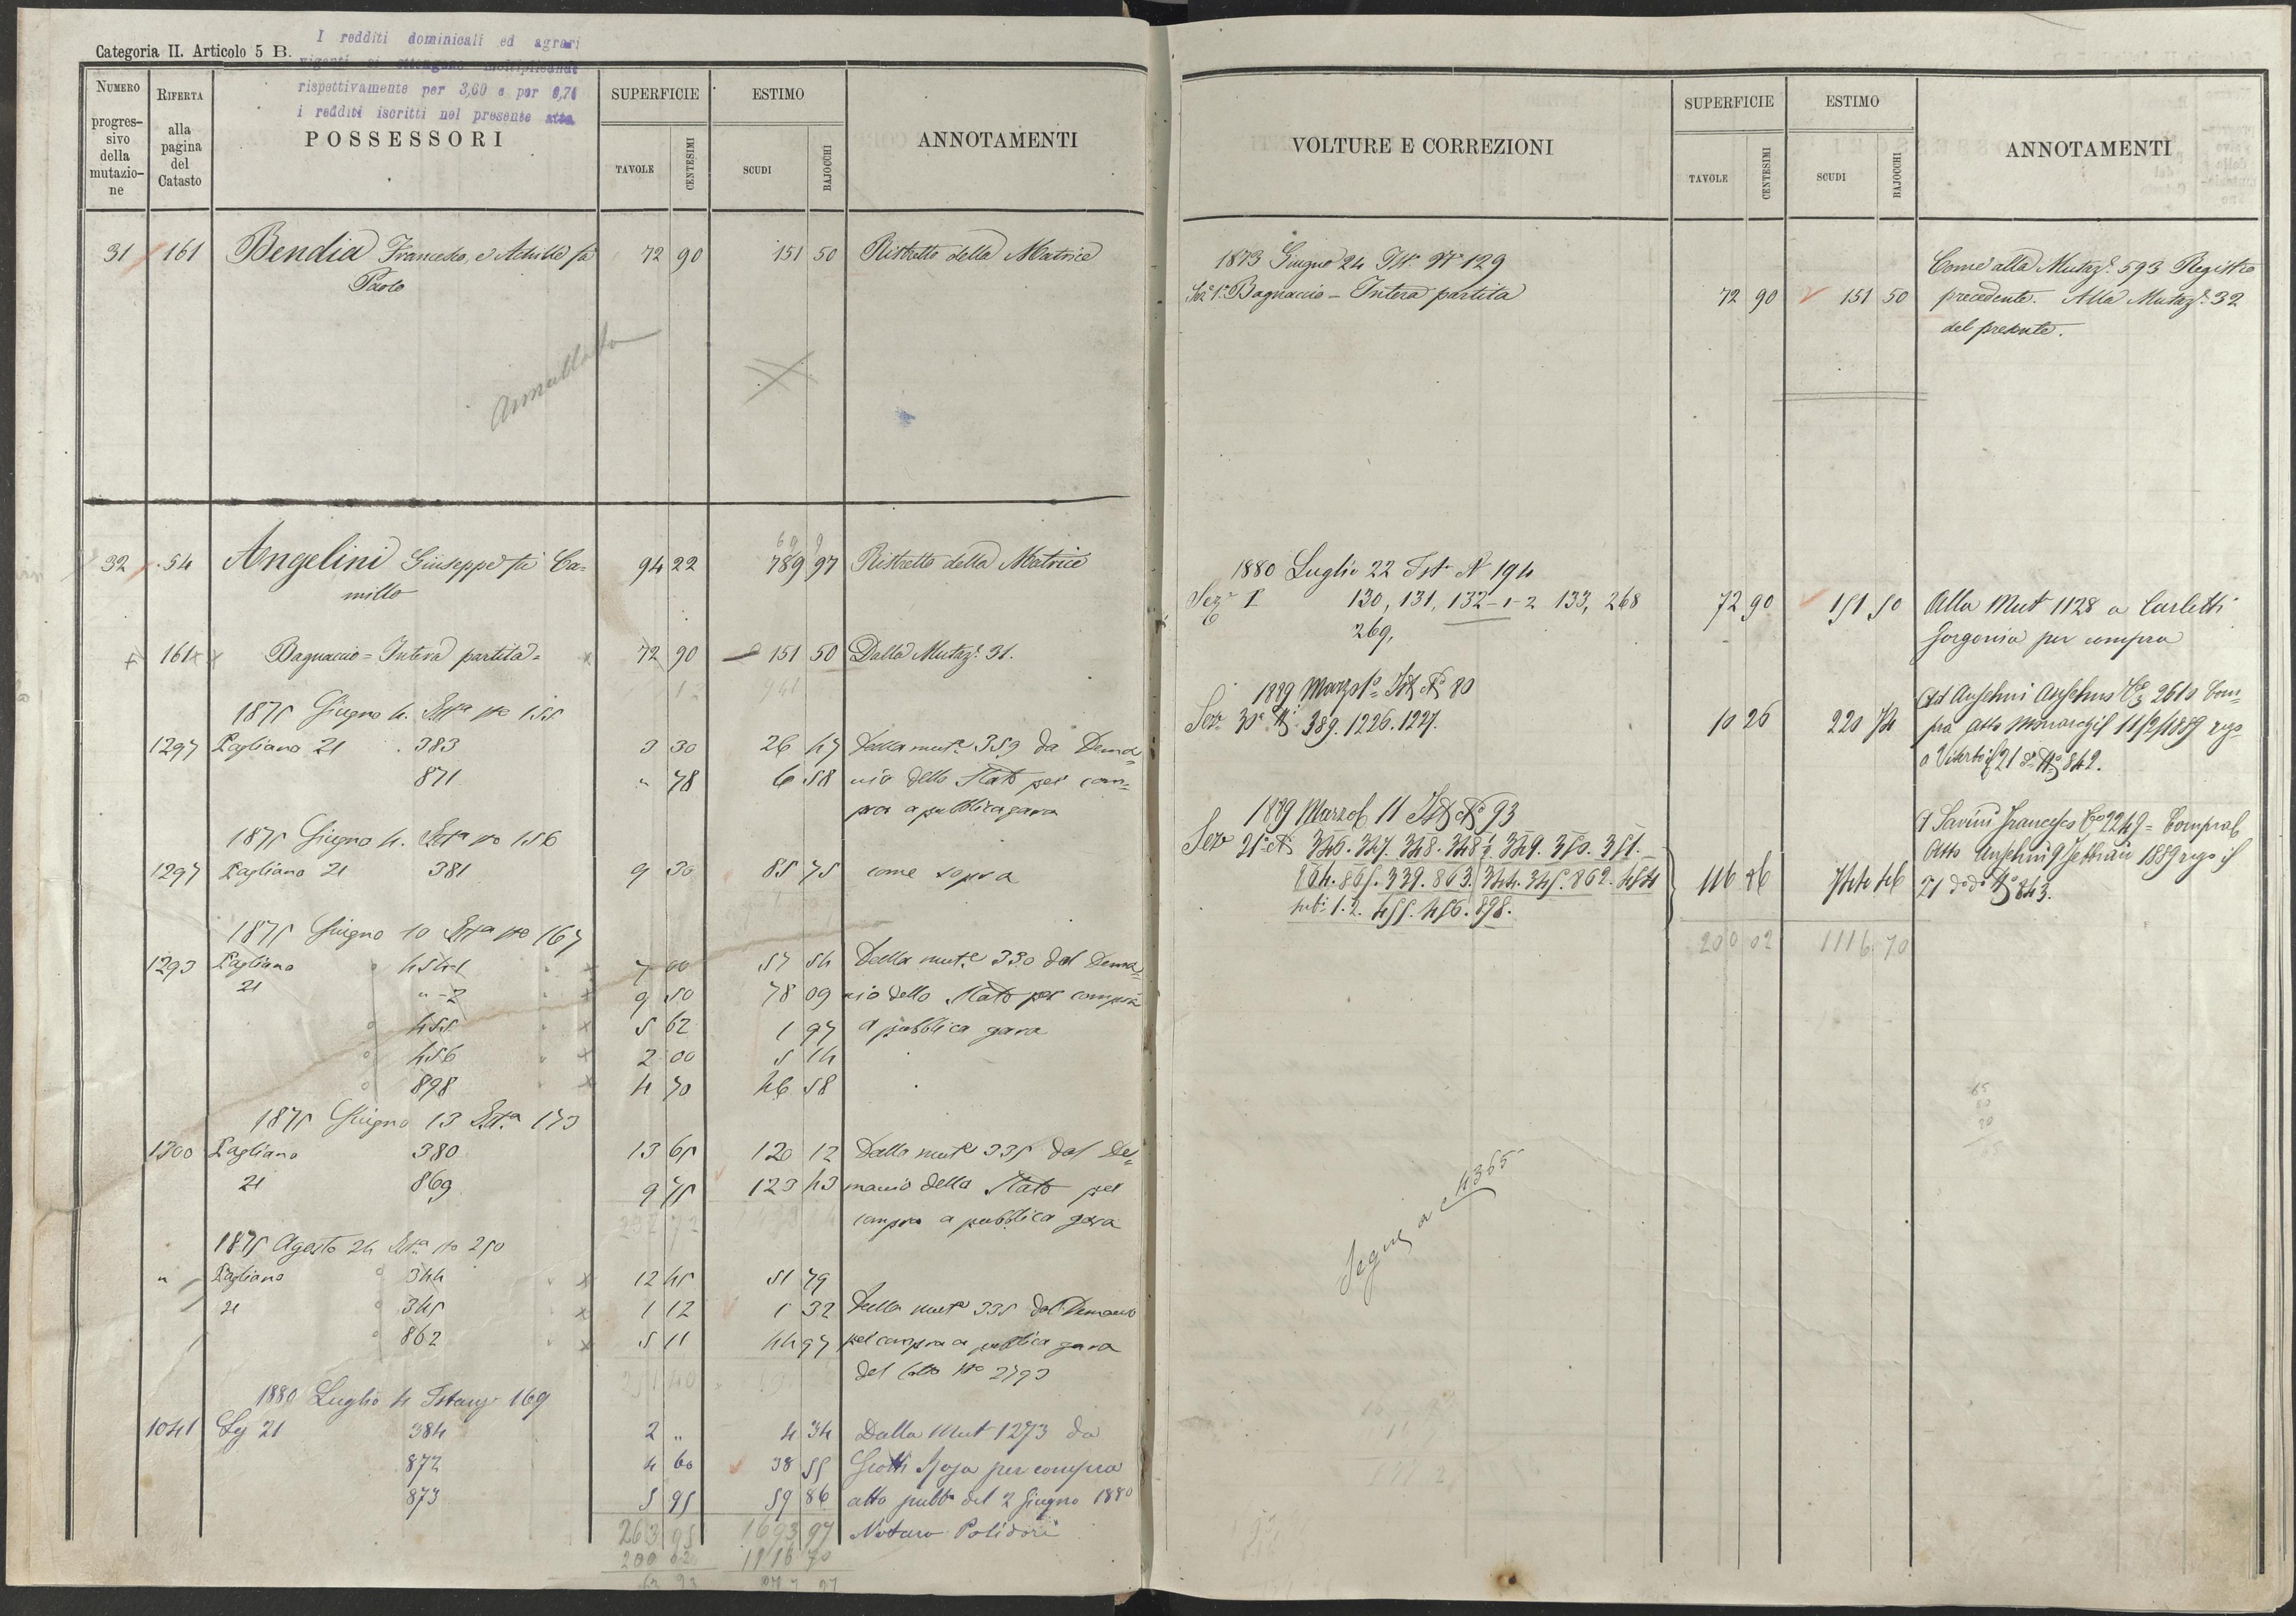 Categoria II. Articolo 5 B.
I redditi dominicali ed agrari
vigenti si ottengono moltiplicando
rispettivamente per 3,60 e per 0,76
i redditi iscritti nel presente atto
NUMERO progressivo della mutazione
RIFERTA alla pagina del Catasto
POSSESSORI
SUPERFICIE
TAVOLE CENTESIMI
ESTIMO
SCUDI BAJOCCHI
ANNOTAMENTI
31 161 Bendia Francesco, e Achille fu 72 90 151 50 Ristretto della Matrice
Paolo
annullata
32 54 Angelini Giuseppe fu Ca= 94 22 789 97 Ristretto della Matrice
millo
161 Bagnaccio = Intera partita = 72 90 151 50 Dalla Mutaz.e 31.
1875 Giugno 4. Ist.a No 155
1297 Pagliano 21 383 3 30 26 47 Dalla mut.e 359 da Dema=
871 " 78 6 58 nio dello Stato per com=
pra a pubblica gara
1875 Giugno 4. Ist.a No 156
1297 Pagliano 21 381 9 30 85 75 come sopra
1875 Giugno 10 Ist.a No 167
1293 Pagliano 454-1 7 00 57 54 Dalla mut.e 330 dal Dema=
21 " -2 9 50 78 09 nio dello Stato per compra
455 5 62 1 97 a pubblica gara
456 2 00 5 14
898 4 70 46 58
1875 Giugno 13 Ist.a 173
1300 Pagliano 380 13 65 120 12 Dalla mut.e 335 dal De=
21 869 9 75 123 43 manio dello Stato per
compra a pubblica gara
1875 Agosto 24 Ist.a No 250
" Pagliano 344 12 45 51 79
21 345 1 12 1 32 Dalla mut.e 335 dal Demanio
862 5 11 44 97 per compra a pubblica gara
del lotto No 2793
1880 Luglio 4 Istanza 169
1041 Sez 21 384 2 " 4 34 Dalla Mut 1273 da
872 4 60 38 55 Giotti Rosa per compra
873 5 95 59 86 atto pubb.o del 2 Giugno 1880
263 95 1693 97 Notaro Polidori
200 02 1116 70
VOLTURE E CORREZIONI
SUPERFICIE
TAVOLE CENTESIMI
ESTIMO
SCUDI BAJOCCHI
ANNOTAMENTI
1873 Giugno 24 Ist. No 129 Come alla Mutaz.e 593 Registro
Sez.e 1.a Bagnaccio - Intera partita 72 90 151 50 precedente. Alla Mutaz.e 32
del presente.
1880 Luglio 22 Ist. N 194
Sez.e I 130, 131, 132-1-2 133, 268 72 90 151 50 Alla Mut 1128 a Carletti
269, Gorgonia per compra
1889 Marzo 1o Ist No 80 Ad Anselmi Anselmo 2610 Com=
Sez.e 30a No 389. 1226. 1227. 10 26 220 74 pra atto 11/2/1889
a Viterbo 21 do No 842.
1889 Marzo 11 Ist No 93 A Savini Francesco 2247 = Compra
Sez 21a No 346. 347. 348. 348½. 349. 350. 351. Atto Anselmi 9 Febbraio 1889
864. 865. 339. 863. 344. 345. 862. 454 116 86 744 46 21 do do No 843.
sub.i 1. 2. 455. 456. 898.
200 02 1116 70
Segue a 4365